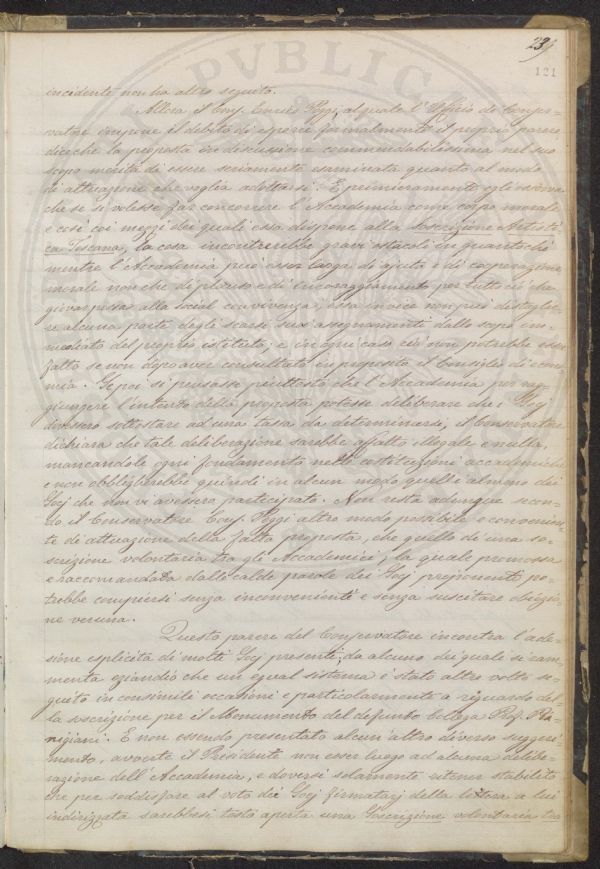 239
121
incidente non ha altro seguito.
Allora il Conf. Enrico Poggi, al quale l'Uffizio di Conser-
vatore impone il debito di esporre formalmente il proprio parere
dice che la proposta in discussione commendabilissima nel suo
scopo merita di essere seriamente esaminata quanto al modo
di attuazione che voglia adottarsi. E primieramente egli osserva
che se si volesse far concorrere l'Accademia come corpo morale
e così coi mezzi dei quali essa dispone alla Soscrizione Artisti-
ca Toscana, la cosa incontrerebbe gravi ostacoli in quanto che
mentre l'Accademia può esser larga di ajuto e di cooperazione
morale non che di plauso e di incoraggiamento per tutto ciò che
giovar possa alla social convivenza, essa invece non può distoglie-
re alcuna parte degli scarsi suoi assegnamenti dallo scopo im-
mediato del proprio istituto; e in ogni caso ciò non potrebbe esser
fatto se non dopo aver consultato in proposito il Consiglio di econo-
mia. Se poi si pensasse piuttosto che l'Accademia per rag-
giungere l'intento della proposta potesse deliberare che i Socj
dovessero sottostare ad una tassa da determinarsi, il Conservatore
dichiara che tale deliberazione sarebbe affatto illegale e nulla,
mancandole ogni fondamento nelle costituzioni accademiche
e non obbligherebbe quindi in alcun modo quelli almeno dei
Socj che non vi avessero participato. Non resta adunque secon-
do il Conservatore Conf. Poggi altro modo possibile e convenien-
te di attuazione della fatta proposta, che quello di una so-
scrizione volontaria tra gli Accademici, la quale promossa
e raccomandata dalle calde parole dei Socj proponenti po-
trebbe compiersi senza inconvenienti e senza suscitare obiezio-
ne veruna.
Questo parere del Conservatore incontra l'ade-
sione esplicita di molti Socj presenti, da alcuno dei quali si ram-
menta eziandio che un egual sistema è stato altre volte se-
guito in consimili occasioni e particolarmente a riguardo del-
la soscrizione per il Monumento del defunto Collega Prof. Pla
nigiani. E non essendo presentato alcun altro diverso suggeri-
mento, avverte il Presidente non esser luogo ad alcuna delibe-
razione dell'Accademia, e doversi solamente ritener stabilito
che per soddisfare al voto dei Socj firmatarj della lettera a lui
indirizzata sarebbesi tosto aperta una Soscrizione volontaria tra